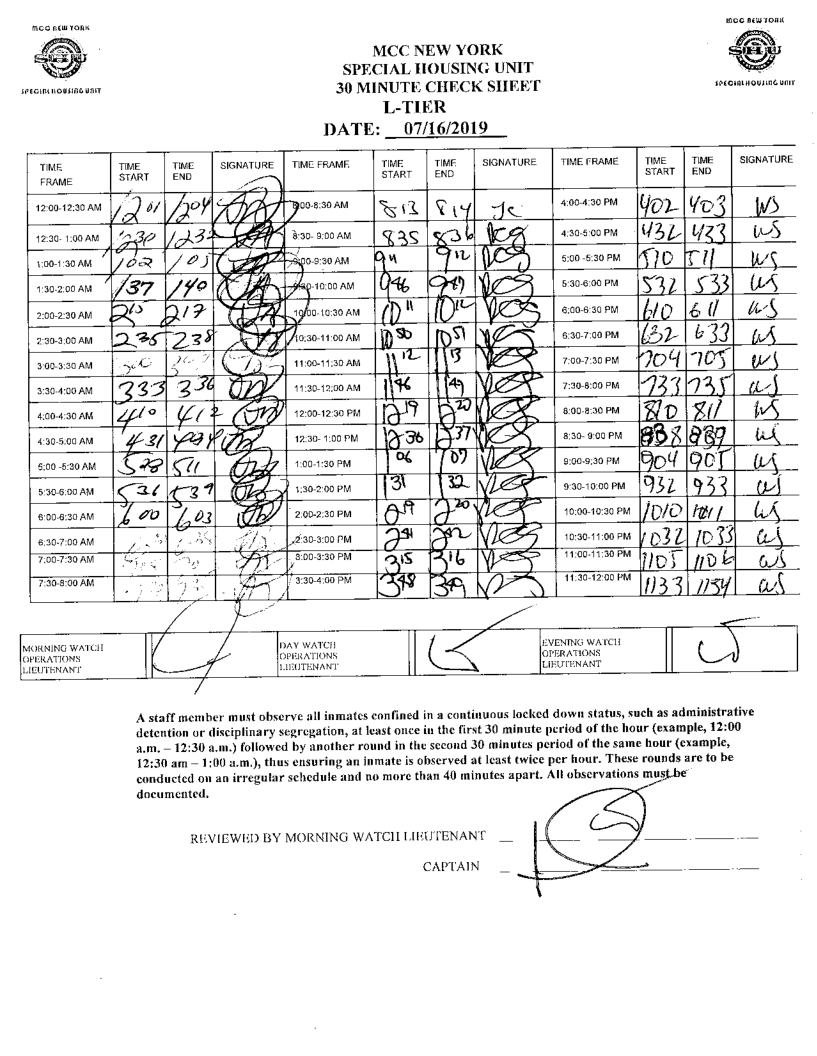 MCC NEW YORK
SHU
SPECIAL HOUSING UNIT
MCC NEW YORK
SHU
SPECIAL HOUSING UNIT
MCC NEW YORK
SPECIAL HOUSING UNIT
30 MINUTE CHECK SHEET
L-TIER
DATE: 07/16/2019
TIME FRAME TIME START TIME END SIGNATURE TIME FRAME TIME START TIME END SIGNATURE TIME FRAME TIME START TIME END SIGNATURE
12:00-12:30 AM 1201 1204 8:00-8:30 AM 813 814 4:00-4:30 PM 402 403 WS
12:30- 1:00 AM 1230 1232 8:30- 9:00 AM 835 836 4:30-5:00 PM 432 433 WS
1:00-1:30 AM 102 105 9:00-9:30 AM 911 912 5:00 -5:30 PM 510 511 WS
1:30-2:00 AM 137 140 9:30-10:00 AM 946 947 5:30-6:00 PM 532 533 WS
2:00-2:30 AM 215 217 10:00-10:30 AM 1011 1012 6:00-6:30 PM 610 611 WS
2:30-3:00 AM 235 238 10:30-11:00 AM 1050 1051 6:30-7:00 PM 632 633 WS
3:00-3:30 AM 11:00-11:30 AM 1112 1113 7:00-7:30 PM 704 705 WS
3:30-4:00 AM 333 336 11:30-12:00 AM 1146 1149 7:30-8:00 PM 733 735 WS
4:00-4:30 AM 410 412 12:00-12:30 PM 1219 1220 8:00-8:30 PM 810 811 WS
4:30-5:00 AM 431 434 12:30- 1:00 PM 1236 1237 8:30- 9:00 PM 838 839 WS
5:00 -5:30 AM 511 1:00-1:30 PM 106 107 9:00-9:30 PM 904 905 WS
5:30-6:00 AM 536 539 1:30-2:00 PM 131 132 9:30-10:00 PM 932 933 WS
6:00-6:30 AM 600 603 2:00-2:30 PM 219 220 10:00-10:30 PM 1010 1011 WS
6:30-7:00 AM 2:30-3:00 PM 241 242 10:30-11:00 PM 1032 1033 WS
7:00-7:30 AM 3:00-3:30 PM 315 316 11:00-11:30 PM 1105 1106 WS
7:30-8:00 AM 3:30-4:00 PM 348 349 11:30-12:00 PM 1133 1134 WS
MORNING WATCH OPERATIONS LIEUTENANT DAY WATCH OPERATIONS LIEUTENANT EVENING WATCH OPERATIONS LIEUTENANT
A staff member must observe all inmates confined in a continuous locked down status, such as administrative
detention or disciplinary segregation, at least once in the first 30 minute period of the hour (example, 12:00
a.m. – 12:30 a.m.) followed by another round in the second 30 minutes period of the same hour (example,
12:30 am – 1:00 a.m.), thus ensuring an inmate is observed at least twice per hour. These rounds are to be
conducted on an irregular schedule and no more than 40 minutes apart. All observations must be
documented.
REVIEWED BY MORNING WATCH LIEUTENANT
CAPTAIN